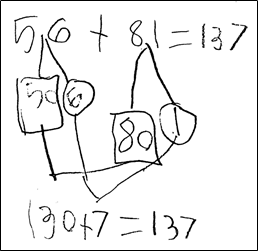 56 + 81 = 137
50 6 80 1
130+7 = 137